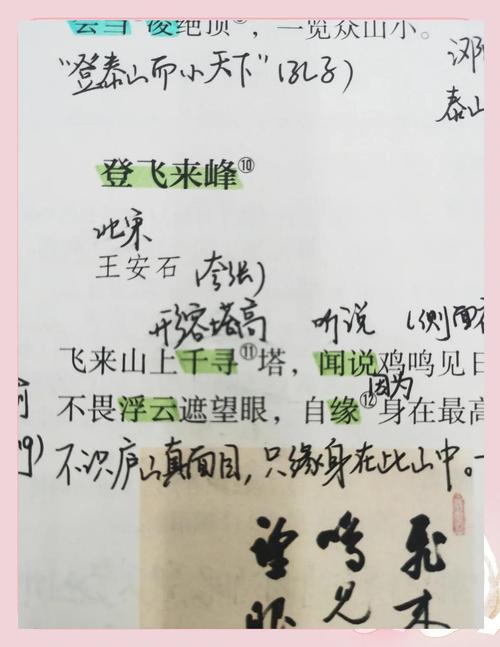 会当凌绝顶，一览众山小。
“登泰山而小天下”（孔子）
泰山
登飞来峰⑩
北宋
王安石（夸张）
形容塔高 听说 （侧面
飞来山上千寻⑪塔，闻说鸡鸣见日
因为
不畏浮云遮望眼，自缘⑫身在最高
不识庐山真面目，只缘身在此山中。
飞来
鸣见
望眼